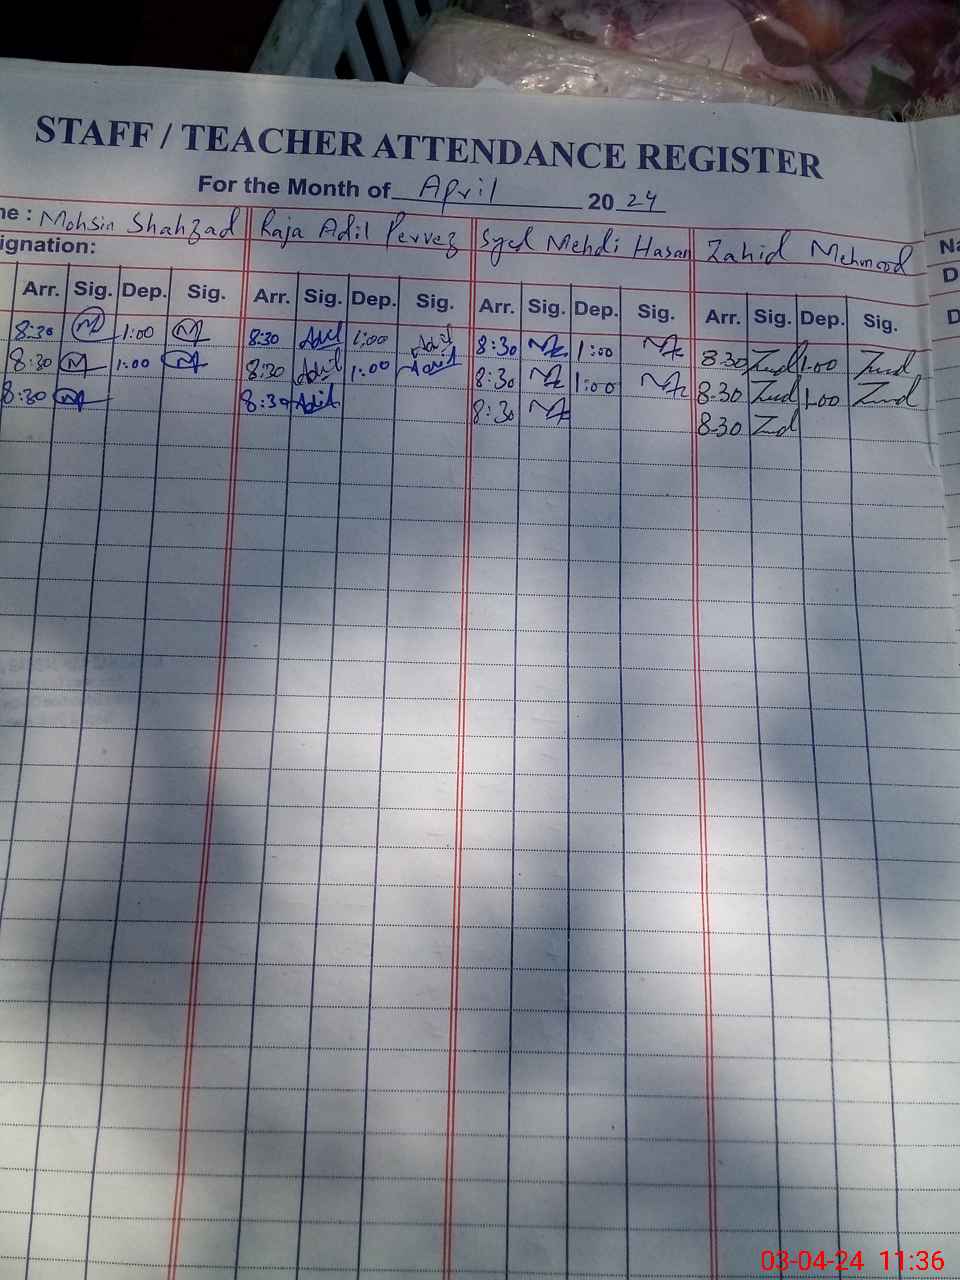 STAFF / TEACHER ATTENDANCE REGISTER
For the Month of April 20 24
ne : Mohsin Shahzad Raja Adil Pervez Syed Mehdi Hasan Zahid Mehmood Na
ignation: D
Arr. Sig. Dep. Sig. Arr. Sig. Dep. Sig. Arr. Sig. Dep. Sig. Arr. Sig. Dep. Sig. D
8:30 M 1:00 M 8:30 Adil 1:00 Adil 8:30 1:00 8.30 1.00
8:30 M 1:00 M 8:30 Adil 1:00 Adil 8:30 1:00 8.30 1.00
8:30 M 8:30 Adil 8:30 8.30 Zd
03-04-24 11:36